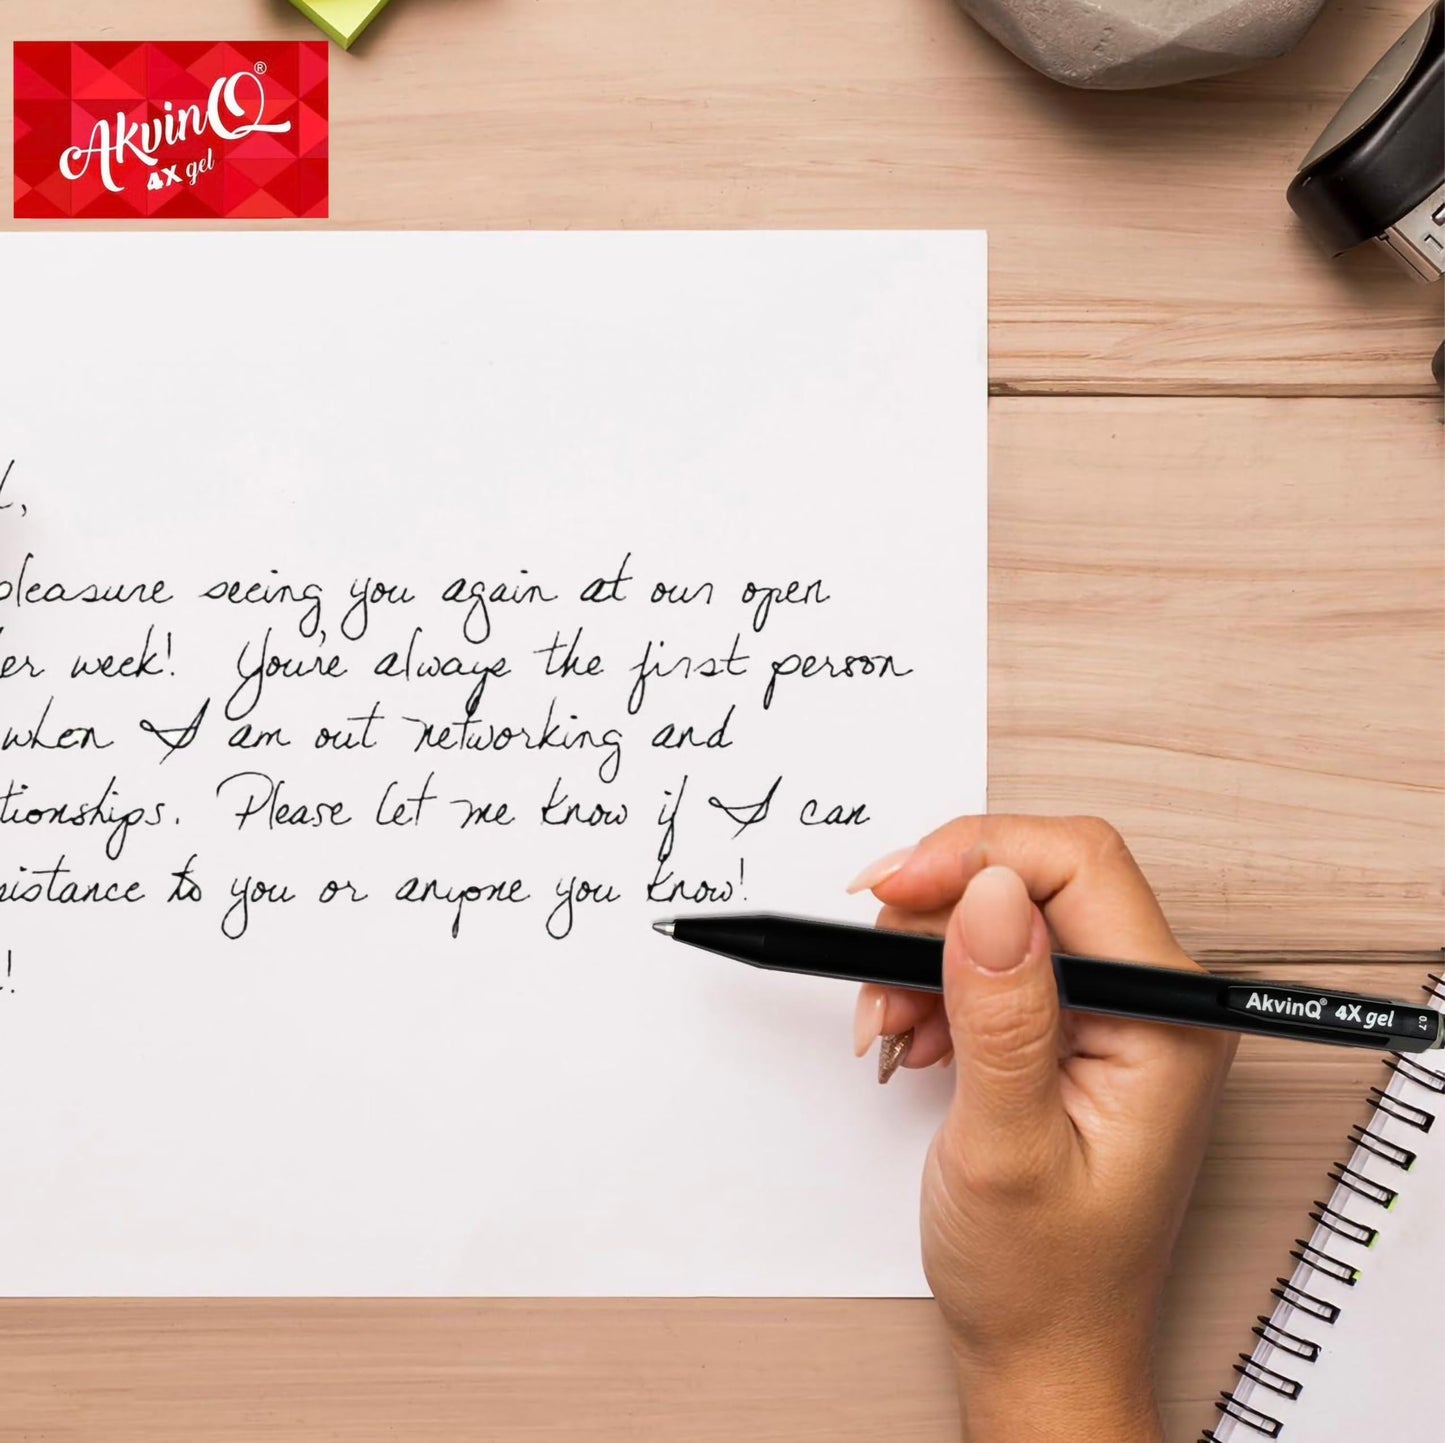 AkvinQ®
4X gel
l,
pleasure seeing you again at our open
er week! You're always the first person
when I am out networking and
tionships. Please let me know if I can
sistance to you or anyone you know!
!
AkvinQ® 4X gel 0.7